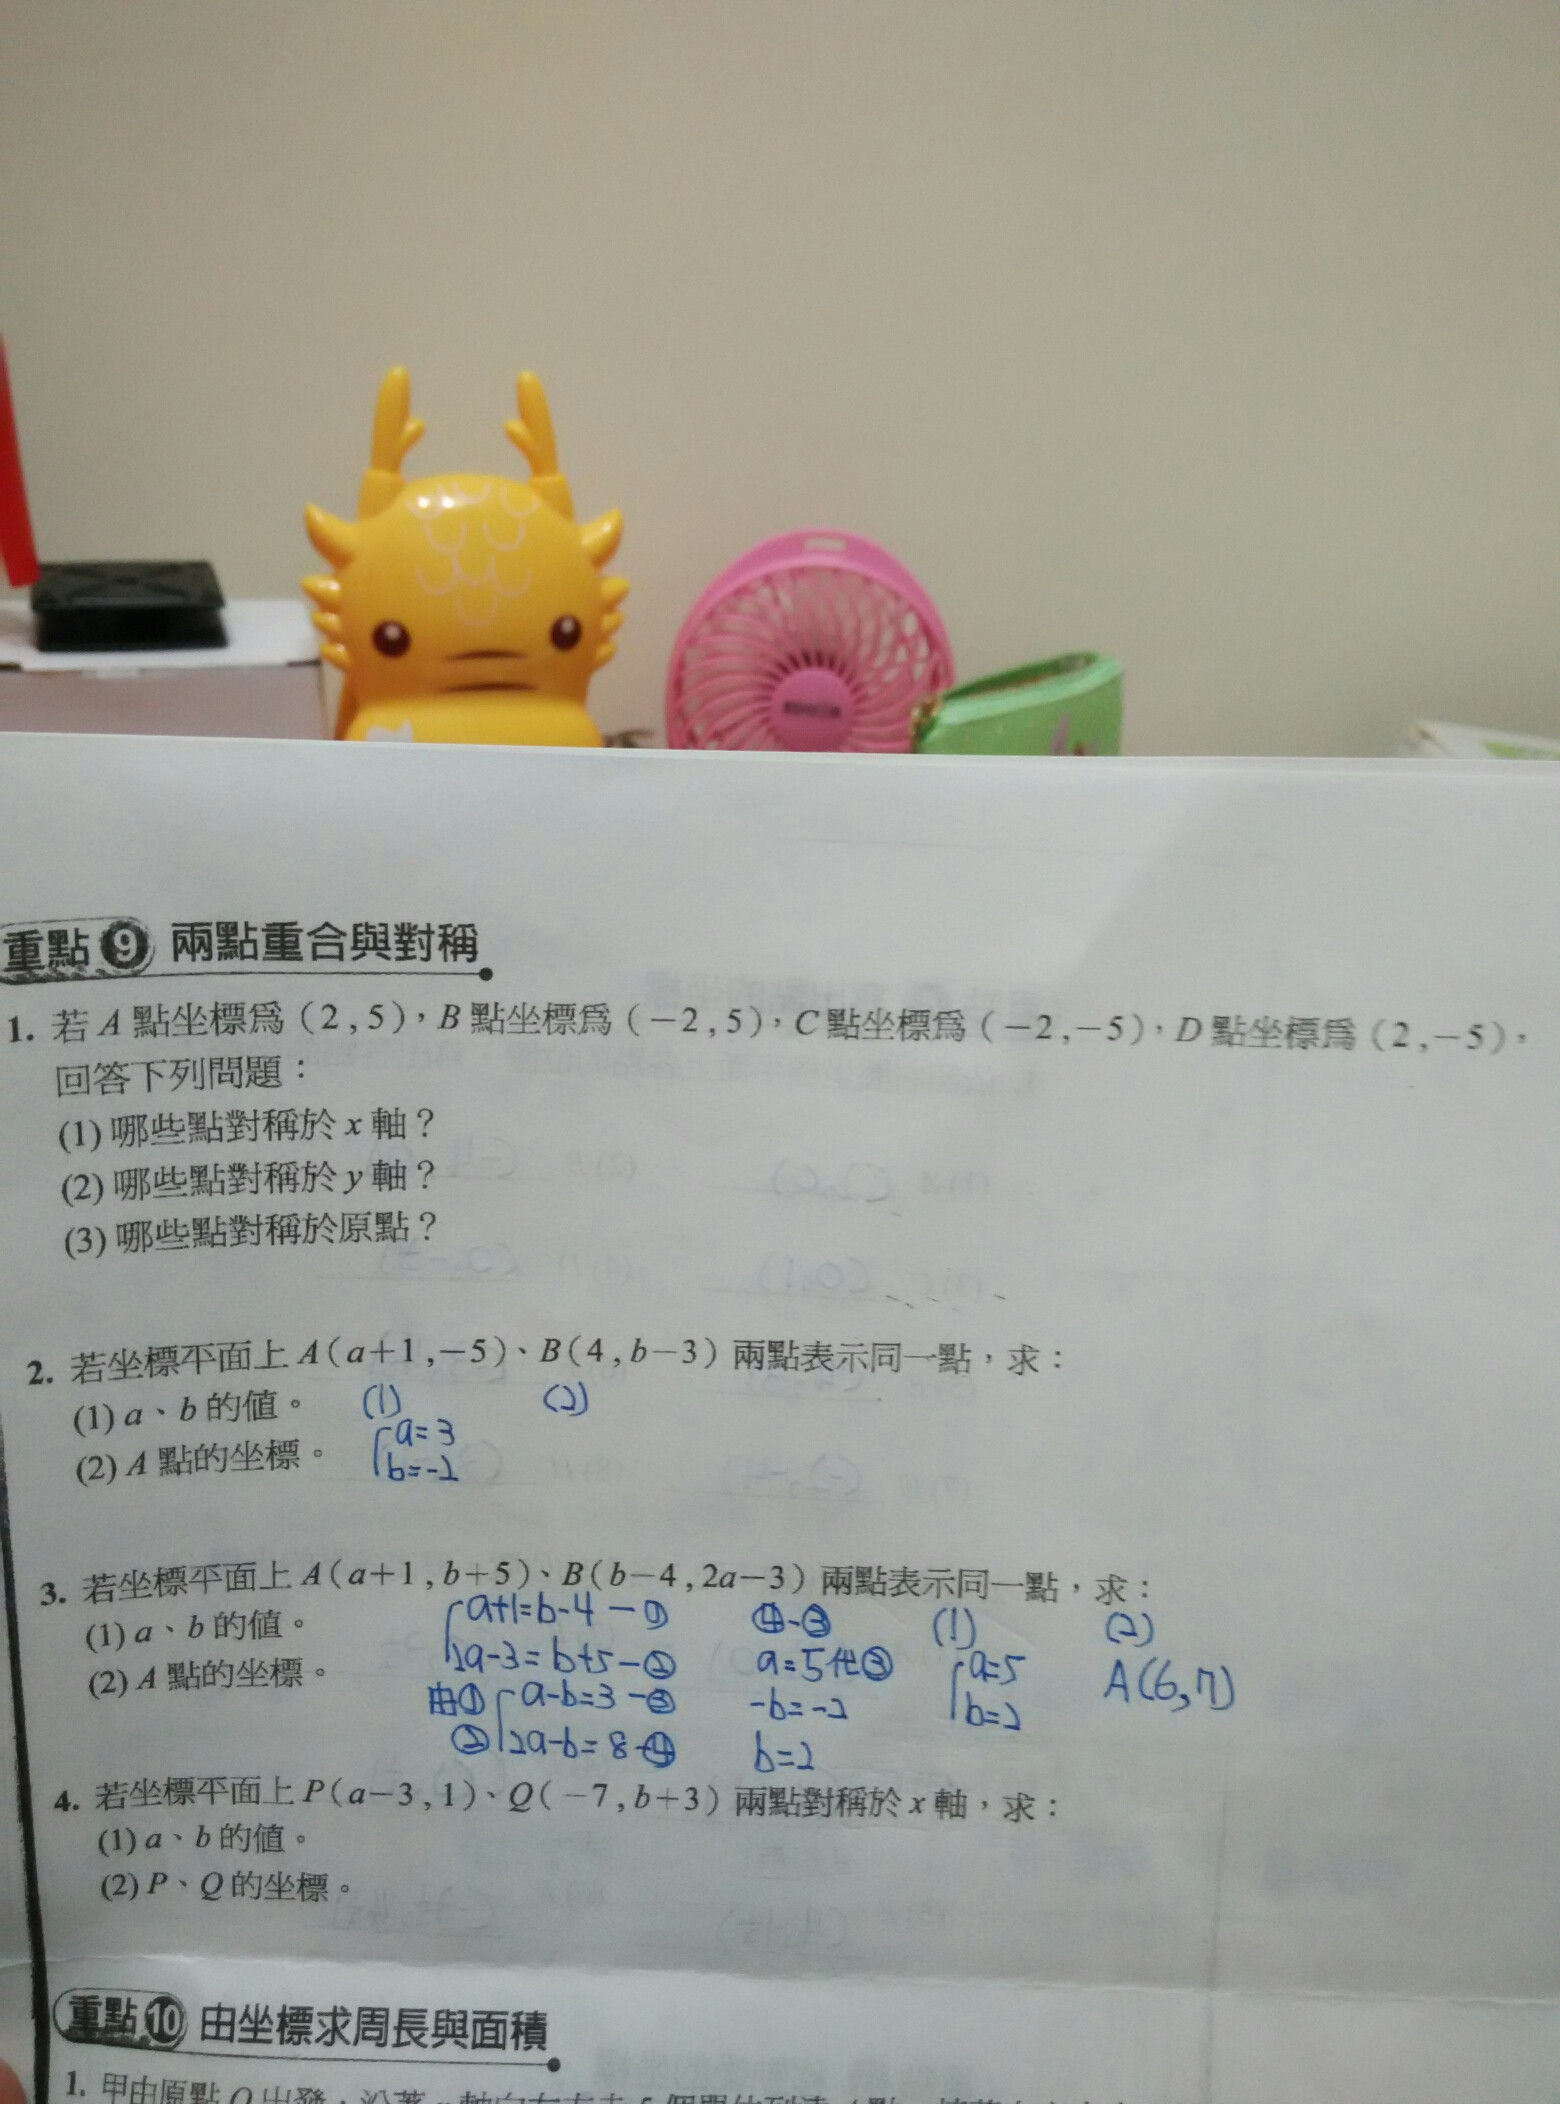 重點 9 兩點重合與對稱
1. 若 A 點坐標為 (2,5),B 點坐標為 (-2,5),C 點坐標為 (-2,-5),D 點坐標為 (2,-5),
回答下列問題:
(1) 哪些點對稱於 x 軸?
(2) 哪些點對稱於 y 軸?
(3) 哪些點對稱於原點?
2. 若坐標平面上 A(a+1,-5)、B(4,b-3) 兩點表示同一點,求:
(1) a、b 的值。 (1) (2)
(2) A 點的坐標。 a=3
b=-2
3. 若坐標平面上 A(a+1,b+5)、B(b-4,2a-3) 兩點表示同一點,求:
(1) a、b 的值。 a+1=b-4-① ④-③ (1) (2)
(2) A 點的坐標。 2a-3=b+5-② a=5代③ a=5 A(6,7)
由① a-b=3-③ -b=-2 b=2
② 2a-b=8-④ b=2
4. 若坐標平面上 P(a-3,1)、Q(-7,b+3) 兩點對稱於 x 軸,求:
(1) a、b 的值。
(2) P、Q 的坐標。
重點 10 由坐標求周長與面積
1. 甲由原點 O 出發,沿著